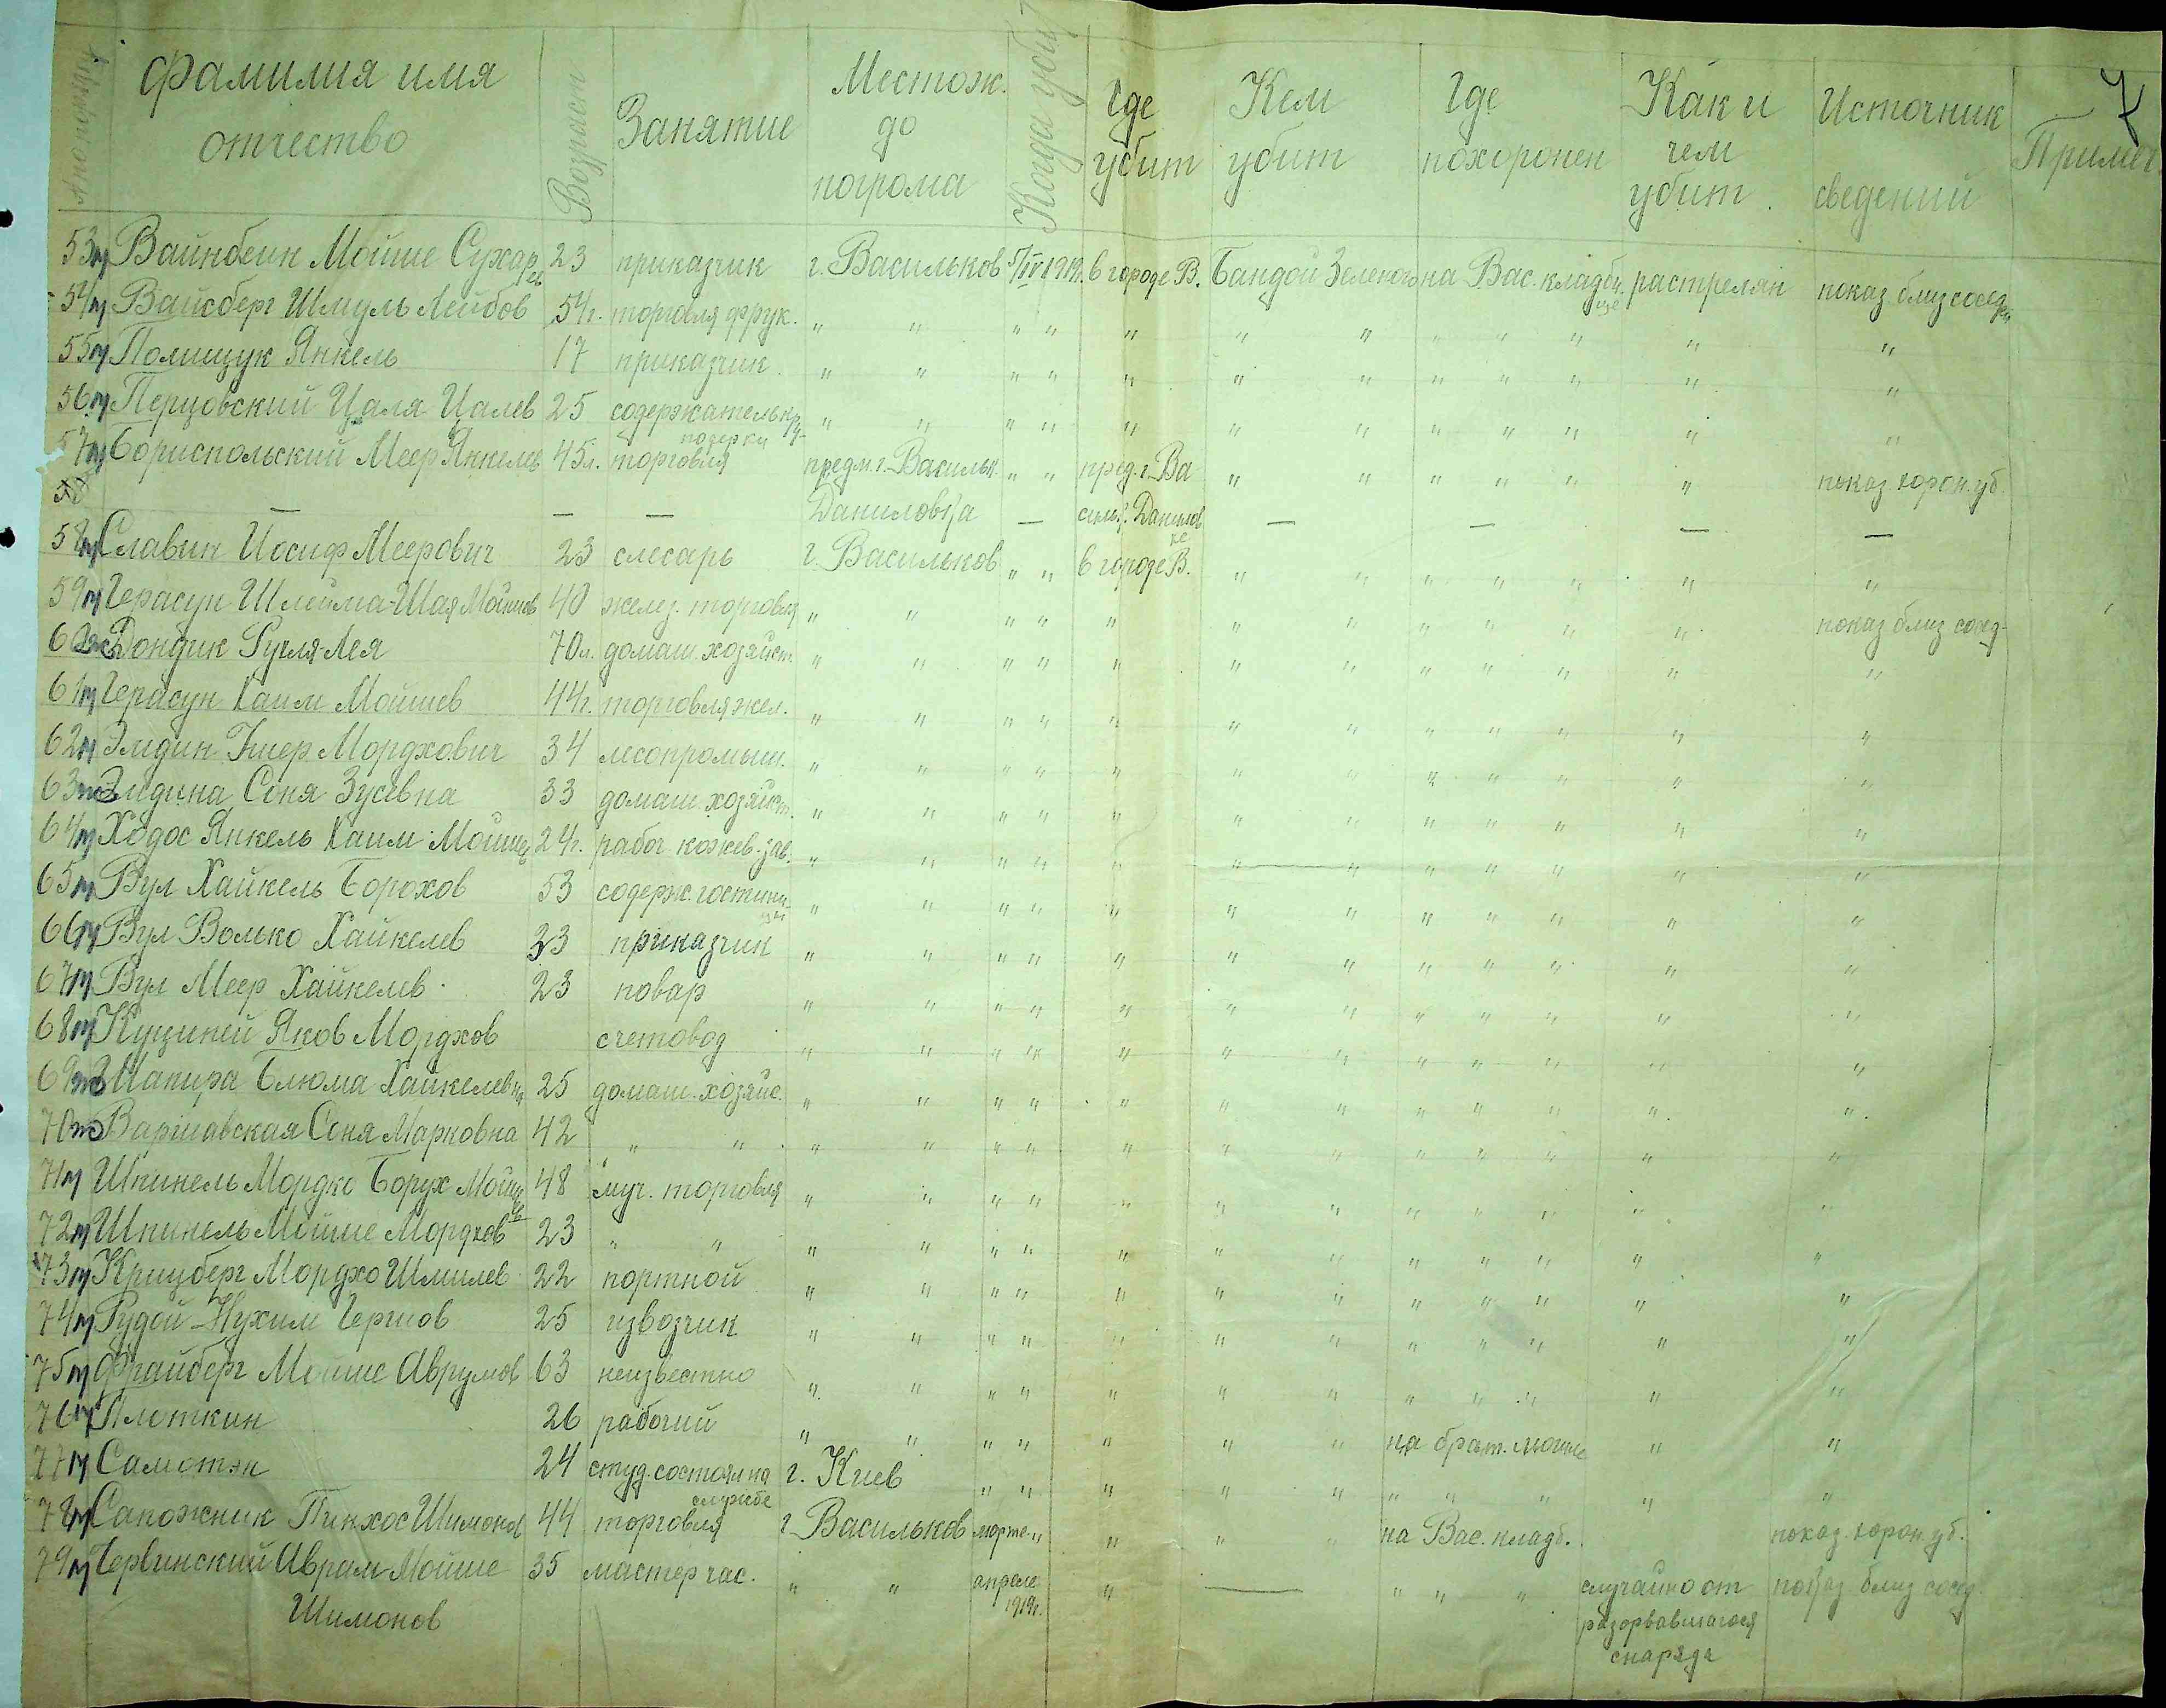 7
Фамилия имя отчество Возраст Занятие Местож. до погрома Когда убит Где убит Кем убит Где похоронен Как и чем убит. Источник сведений Примеч.
53 м Вайнбейн Мойше Сухарев 23 приказчик г. Васильков 5/IV 1919. в городе В. Бандой Зеленого на Вас. кладбище растрелян показ. близ сосед.
54 м Вайсберг Шмуль Лейбов 54 г. торговля фрук. " " " " " " " " " " " "
55 м Полищук Янкель 17 приказчик. " " " " " " " " " " " "
56 м Перцовский Цаля Цалев 25 содержатель " " " " " " " " " " " "
57 м Бориспольский Меер Янкелев 45 л. торговля предм. г. Васильк. " " пред. г. Ва " " " " " " показ. хорон. уб.
— — — Даниловка — Данилов ке — — — —
58 м Славин Иосиф Меерович 23 слесарь г. Васильков " " в городе В. " " " " " " "
59 м Герасун Шлейма-Шая Мойшев 40 желез. торговля " " " " " " " " " " " показ близ сосед.
60 ж Дондик Рухля-Лея 70 л. домаш. хозяйст. " " " " " " " " " " " "
61 м Герасун Хаим Мойшев 44 г. торговля жел. " " " " " " " " " " " "
62 м Элидин Ушер Мордкович 34 лесопромыш. " " " " " " " " " " " "
63 ж Элидина Соня Зусевна 33 домаш. хозяйст. " " " " " " " " " " " "
64 м Ходос Янкель Хаим Мойшев 24 г. рабоч. кожев. зав. " " " " " " " " " " " "
65 м Вул Хайкель Борохов 53 содерж. гостиницы " " " " " " " " " " " "
66 м Вул Волько Хайкелев 33 приказчик " " " " " " " " " " " "
67 м Вул Меер Хайкелев 23 повар " " " " " " " " " " " "
68 м Куципей Яков Мордхов счетовод " " " " " " " " " " " "
69 ж Шапира Блюма Хайкелевна 25 домаш. хозяйс. " " " " " " " " " " " "
70 ж Варшавская Соня Марковна 42 " " " " " " " " " " " " " "
71 м Шпинель Мордко Борух Мойшев 48 муч. торговля " " " " " " " " " " " "
72 м Шпинель Мойше Мордков 23 " " " " " " " " " " " " " "
73 м Крицберг Мордко Шмилев 22 портной " " " " " " " " " " " "
74 м Рудой Нухим Гершов 25 извозчик " " " " " " " " " " " "
75 м Фрайберг Мойше Аврумов 63 неизвестно " " " " " " " " " " " "
76 м Плоткин 26 рабочий " " " " " " " на брат. могиле " "
77 м Самотэн 24 студ. состоял на службе г. Киев " " " " " " " " " "
78 м Сапожник Пинхос Шимонов 44 торговля г. Васильков марте " " " " на Вас. кладб. показ. хорон. уб.
79 м Червинский Аврам Мойше 35 мастер час. " " апреле 1919 г. " — " " " случайно от показ. близ сосед.
Шимонов разорвавшагося
снаряда